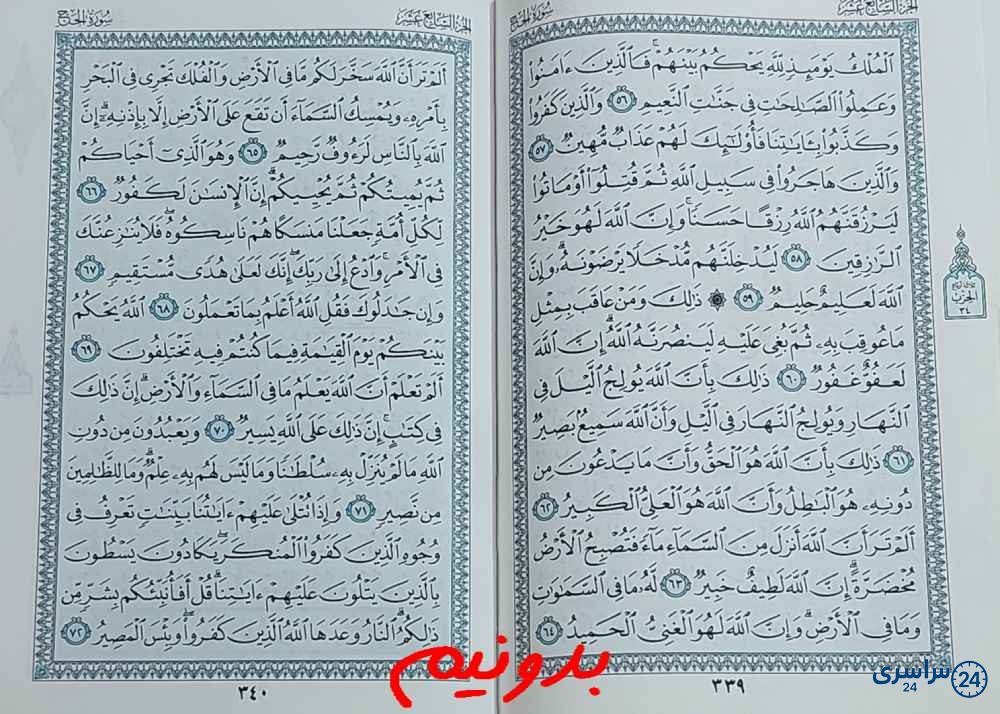 الجزء السابع عشر
سورة الحج
ٱلۡمُلۡكُ يَوۡمَئِذٖ لِّلَّهِ يَحۡكُمُ بَيۡنَهُمۡۚ فَٱلَّذِينَ ءَامَنُواْ
وَعَمِلُواْ ٱلصَّٰلِحَٰتِ فِي جَنَّٰتِ ٱلنَّعِيمِ ٥٦ وَٱلَّذِينَ كَفَرُواْ
وَكَذَّبُواْ بِـَٔايَٰتِنَا فَأُوْلَٰٓئِكَ لَهُمۡ عَذَابٞ مُّهِينٞ ٥٧
وَٱلَّذِينَ هَاجَرُواْ فِي سَبِيلِ ٱللَّهِ ثُمَّ قُتِلُوٓاْ أَوۡ مَاتُواْ
لَيَرۡزُقَنَّهُمُ ٱللَّهُ رِزۡقًا حَسَنٗاۚ وَإِنَّ ٱللَّهَ لَهُوَ خَيۡرُ
ٱلرَّٰزِقِينَ ٥٨ لَيُدۡخِلَنَّهُم مُّدۡخَلٗا يَرۡضَوۡنَهُۥۚ وَإِنَّ
ٱللَّهَ لَعَلِيمٌ حَلِيمٞ ٥٩ ۞ ذَٰلِكَۖ وَمَنۡ عَاقَبَ بِمِثۡلِ
مَا عُوقِبَ بِهِۦ ثُمَّ بُغِيَ عَلَيۡهِ لَيَنصُرَنَّهُ ٱللَّهُۚ إِنَّ ٱللَّهَ
لَعَفُوٌّ غَفُورٞ ٦٠ ذَٰلِكَ بِأَنَّ ٱللَّهَ يُولِجُ ٱلَّيۡلَ فِي
ٱلنَّهَارِ وَيُولِجُ ٱلنَّهَارَ فِي ٱلَّيۡلِ وَأَنَّ ٱللَّهَ سَمِيعُۢ بَصِيرٞ
٦١ ذَٰلِكَ بِأَنَّ ٱللَّهَ هُوَ ٱلۡحَقُّ وَأَنَّ مَا يَدۡعُونَ مِن
دُونِهِۦ هُوَ ٱلۡبَٰطِلُ وَأَنَّ ٱللَّهَ هُوَ ٱلۡعَلِيُّ ٱلۡكَبِيرُ ٦٢
أَلَمۡ تَرَ أَنَّ ٱللَّهَ أَنزَلَ مِنَ ٱلسَّمَآءِ مَآءٗ فَتُصۡبِحُ ٱلۡأَرۡضُ
مُخۡضَرَّةًۚ إِنَّ ٱللَّهَ لَطِيفٌ خَبِيرٞ ٦٣ لَّهُۥ مَا فِي ٱلسَّمَٰوَٰتِ
وَمَا فِي ٱلۡأَرۡضِۚ وَإِنَّ ٱللَّهَ لَهُوَ ٱلۡغَنِيُّ ٱلۡحَمِيدُ ٦٤
٣٣٩
الحزب
٣٤
الجزء السابع عشر
سورة الحج
أَلَمۡ تَرَ أَنَّ ٱللَّهَ سَخَّرَ لَكُم مَّا فِي ٱلۡأَرۡضِ وَٱلۡفُلۡكَ تَجۡرِي فِي ٱلۡبَحۡرِ
بِأَمۡرِهِۦ وَيُمۡسِكُ ٱلسَّمَآءَ أَن تَقَعَ عَلَى ٱلۡأَرۡضِ إِلَّا بِإِذۡنِهِۦٓۚ إِنَّ
ٱللَّهَ بِٱلنَّاسِ لَرَءُوفٞ رَّحِيمٞ ٦٥ وَهُوَ ٱلَّذِيٓ أَحۡيَاكُمۡ
ثُمَّ يُمِيتُكُمۡ ثُمَّ يُحۡيِيكُمۡۗ إِنَّ ٱلۡإِنسَٰنَ لَكَفُورٞ ٦٦
لِّكُلِّ أُمَّةٖ جَعَلۡنَا مَنسَكًا هُمۡ نَاسِكُوهُۖ فَلَا يُنَٰزِعُنَّكَ
فِي ٱلۡأَمۡرِۚ وَٱدۡعُ إِلَىٰ رَبِّكَۖ إِنَّكَ لَعَلَىٰ هُدٗى مُّسۡتَقِيمٖ ٦٧
وَإِن جَٰدَلُوكَ فَقُلِ ٱللَّهُ أَعۡلَمُ بِمَا تَعۡمَلُونَ ٦٨ ٱللَّهُ يَحۡكُمُ
بَيۡنَكُمۡ يَوۡمَ ٱلۡقِيَٰمَةِ فِيمَا كُنتُمۡ فِيهِ تَخۡتَلِفُونَ ٦٩
أَلَمۡ تَعۡلَمۡ أَنَّ ٱللَّهَ يَعۡلَمُ مَا فِي ٱلسَّمَآءِ وَٱلۡأَرۡضِۚ إِنَّ ذَٰلِكَ
فِي كِتَٰبٍۚ إِنَّ ذَٰلِكَ عَلَى ٱللَّهِ يَسِيرٞ ٧٠ وَيَعۡبُدُونَ مِن دُونِ
ٱللَّهِ مَا لَمۡ يُنَزِّلۡ بِهِۦ سُلۡطَٰنٗا وَمَا لَيۡسَ لَهُم بِهِۦ عِلۡمٞۗ وَمَا لِلظَّٰلِمِينَ
مِن نَّصِيرٖ ٧١ وَإِذَا تُتۡلَىٰ عَلَيۡهِمۡ ءَايَٰتُنَا بَيِّنَٰتٖ تَعۡرِفُ فِي
وُجُوهِ ٱلَّذِينَ كَفَرُواْ ٱلۡمُنكَرَۖ يَكَادُونَ يَسۡطُونَ
بِٱلَّذِينَ يَتۡلُونَ عَلَيۡهِمۡ ءَايَٰتِنَاۗ قُلۡ أَفَأُنَبِّئُكُم بِشَرّٖ مِّن
ذَٰلِكُمُۚ ٱلنَّارُ وَعَدَهَا ٱللَّهُ ٱلَّذِينَ كَفَرُواْۖ وَبِئۡسَ ٱلۡمَصِيرُ ٧٢
٣٤٠
بدونیم
سراسری
24
24